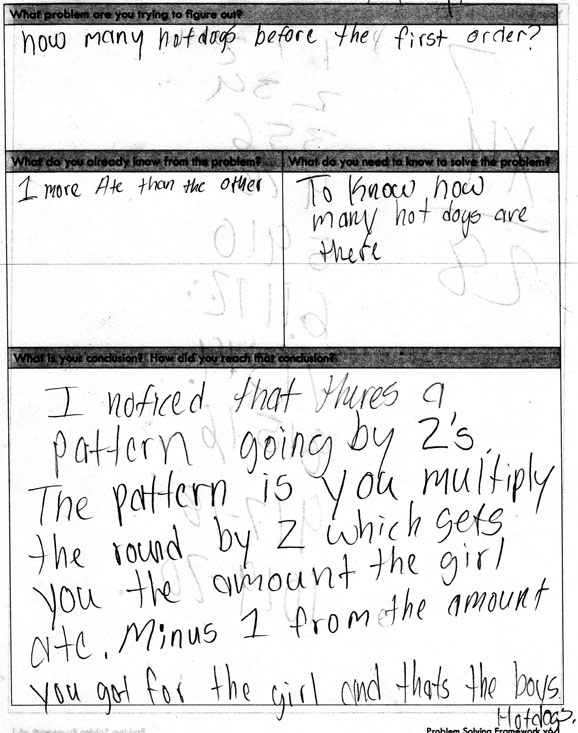 What problem are you trying to figure out?
how many hotdogs before the first order?
What do you already know from the problem?
1 more Ate than the other
What do you need to know to solve the problem?
To Know how
many hot dogs are
there
What is your conclusion? How did you reach that conclusion?
I noticed that thères a
pattern going by 2's.
The pattern is you multiply
the round by 2 which gets
you the amount the girl
ate. Minus 1 from the amount
you got for the girl and thats the boys
Hotdogs.
Problem Solving Framework v6.1